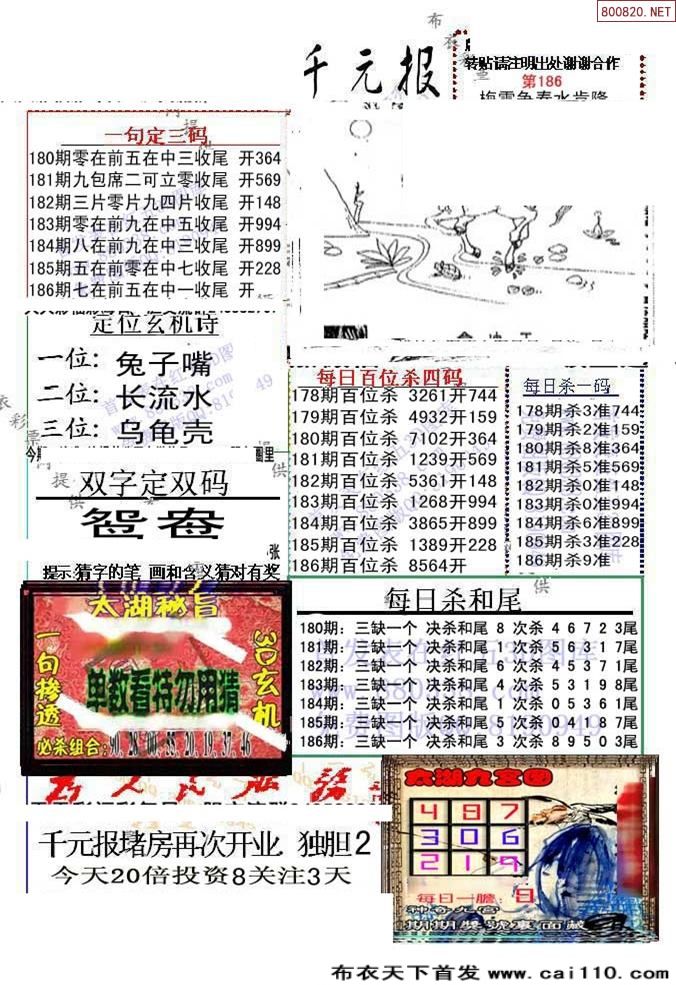 800820.NET
布衣彩票
千元报
转贴请注明出处谢谢合作
第186
梅雪争春水肯降
一句定三码
180期零在前五在中三收尾 开364
181期九包席二可立零收尾 开569
182期三片零片九四片收尾 开148
183期零在前九在中五收尾 开994
184期八在前九在中三收尾 开899
185期五在前零在中七收尾 开228
186期七在前五在中一收尾 开
定位玄机诗
一位: 兔子嘴
二位: 长流水
三位: 乌龟壳
双字定双码
鸳鸯
提示:猜字的笔 画和含义猜对有奖
每日百位杀四码
178期百位杀 3261开744
179期百位杀 4932开159
180期百位杀 7102开364
181期百位杀 1239开569
182期百位杀 5361开148
183期百位杀 1268开994
184期百位杀 3865开899
185期百位杀 1389开228
186期百位杀 8564开
每日杀一码
178期杀3准744
179期杀2准159
180期杀8准364
181期杀5准569
182期杀0准148
183期杀0准994
184期杀6准899
185期杀3准228
186期杀9准
太湖秘旨
一句掺透
3D玄机
单数看特勿用猜
必杀组合:90.28.00.55.20.19.37.46
每日杀和尾
180期: 三缺一个 决杀和尾 8 次杀 4 6 7 2 3尾
181期: 三缺一个 决杀和尾 1 次杀 5 6 3 1 7尾
182期: 三缺一个 决杀和尾 1 次杀 4 5 3 7 1尾
183期: 三缺一个 决杀和尾 4 次杀 5 3 1 9 8尾
184期: 三缺一个 决杀和尾 1 次杀 0 5 3 6 1尾
185期: 三缺一个 决杀和尾 5 次杀 0 4 1 8 7尾
186期: 三缺一个 决杀和尾 3 次杀 8 9 5 0 3尾
太湖九宫图
4 8 7
3 0 6
2 1 9
每日一膽: 8
期期獎號裏面藏
千元报堵房再次开业 独胆2
今天20倍投资8关注3天
布衣天下首发 www.cai110.com